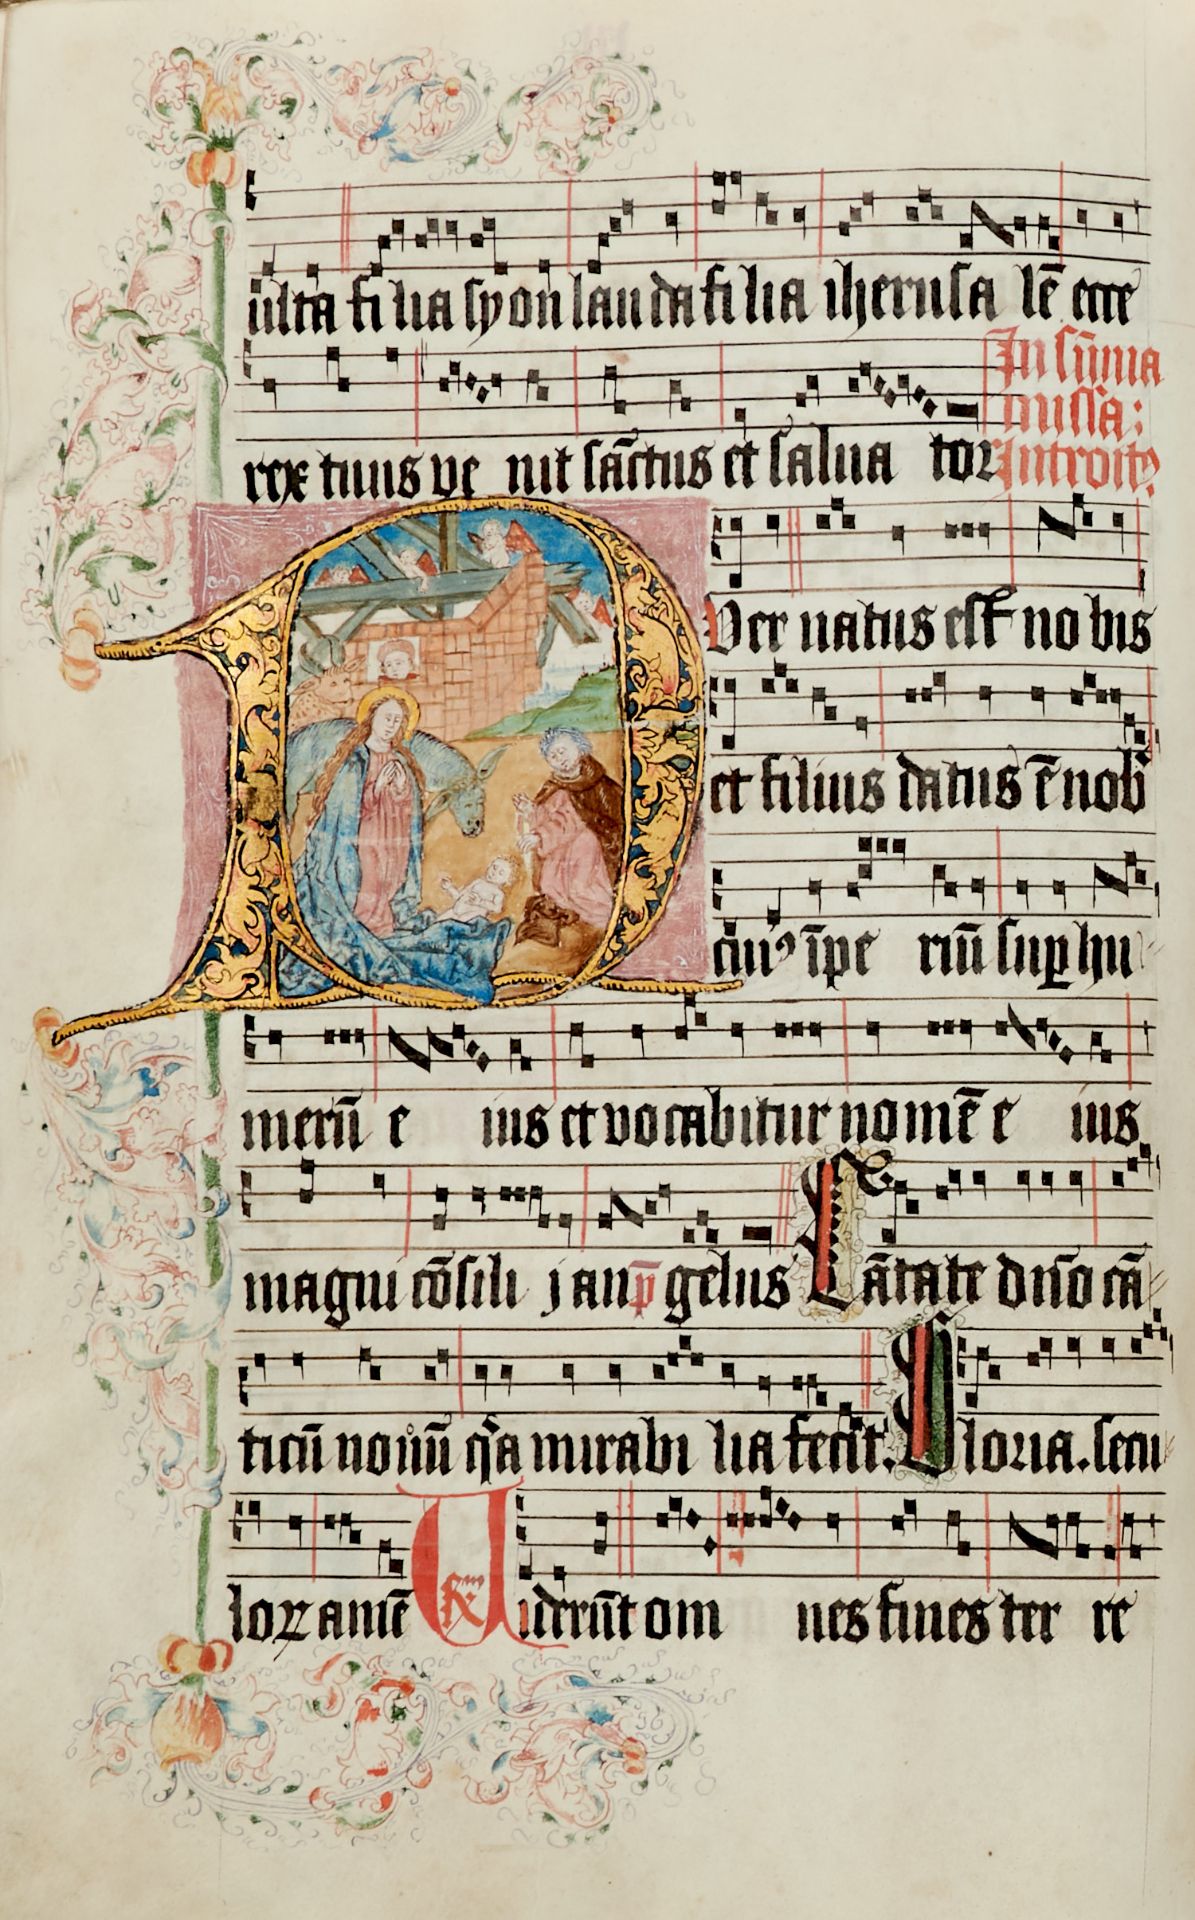 ulta fi lia sy on lau da fi lia iherusa lē ecce
rex tuus ve nit sāctus et salua tor
In sūma
missa:
Introitꝰ
Puer natus est no bis
et filius datus ē nob
cuiꝰ īpe riū suꝑ hu
merū e ius et vocabitur nomē e ius
magni cōsili j an gelus Cātate dn̄o cā
ticū nouū qa mirabi lia fecit. Gloria. secu
loꝝ amē Viderūt om nes fines ter re